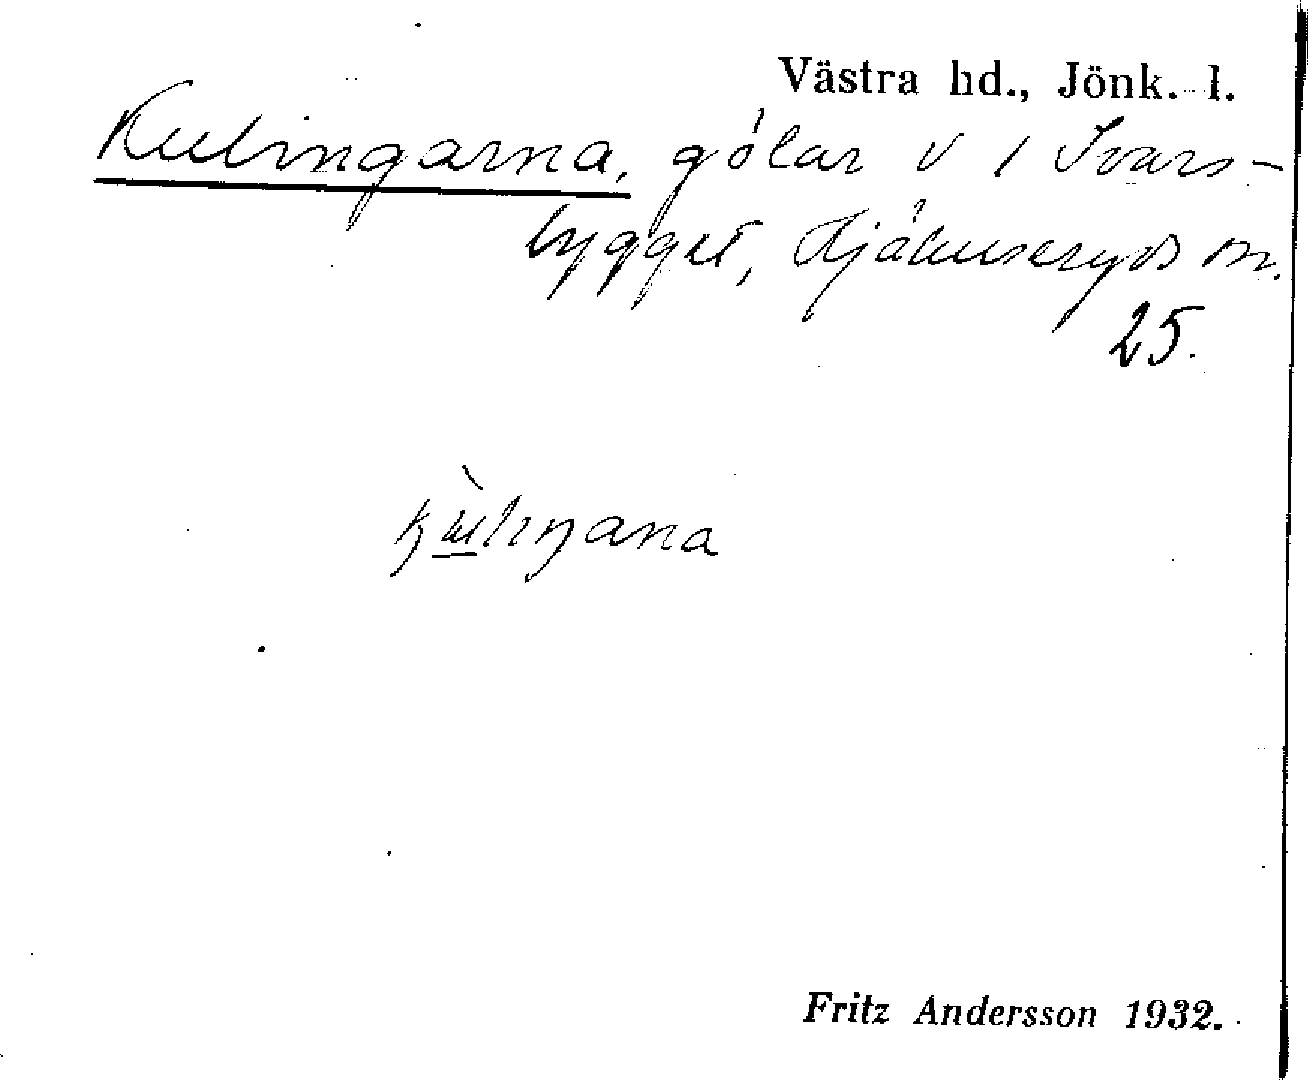 Västra hd., Jönk. l.
Kulingarna, gölar V / Ivars-
bygget, Hjälmseryds sn.
25.
Fritz Andersson 1932.